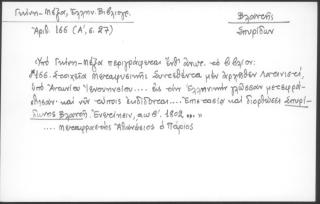 Γκίνη-Μέξα, Ἑλλην. Βιβλιογρ.
Ἀριθ. 166 (Α', σ. 27)
Βλαντῆς
Σπυρίδων
Ὑπὸ Γκίνη-Μέξα περιγράφεται τὸ βιβλίον:
"166. Στοιχεῖα Μεταφυσικῆς Συντεθέντα μὲν ἀρχῆθεν Λατινιστί,
ὑπὸ Ἀντωνίου Γενουηνσίου.... εἰς τὴν Ἑλληνικὴν γλῶσσαν μεταφρα-
σθέντα καὶ νῦν τύποις ἐκδίδονται.... Ἐπιστασίᾳ καὶ διορθώσει Σπυρί-
δωνος Βλαντῆ. Ἐνετίησιν, αωϛʹ. 1802..."
.... Μεταφραστὴς Ἀθανάσιος ὁ Πάριος